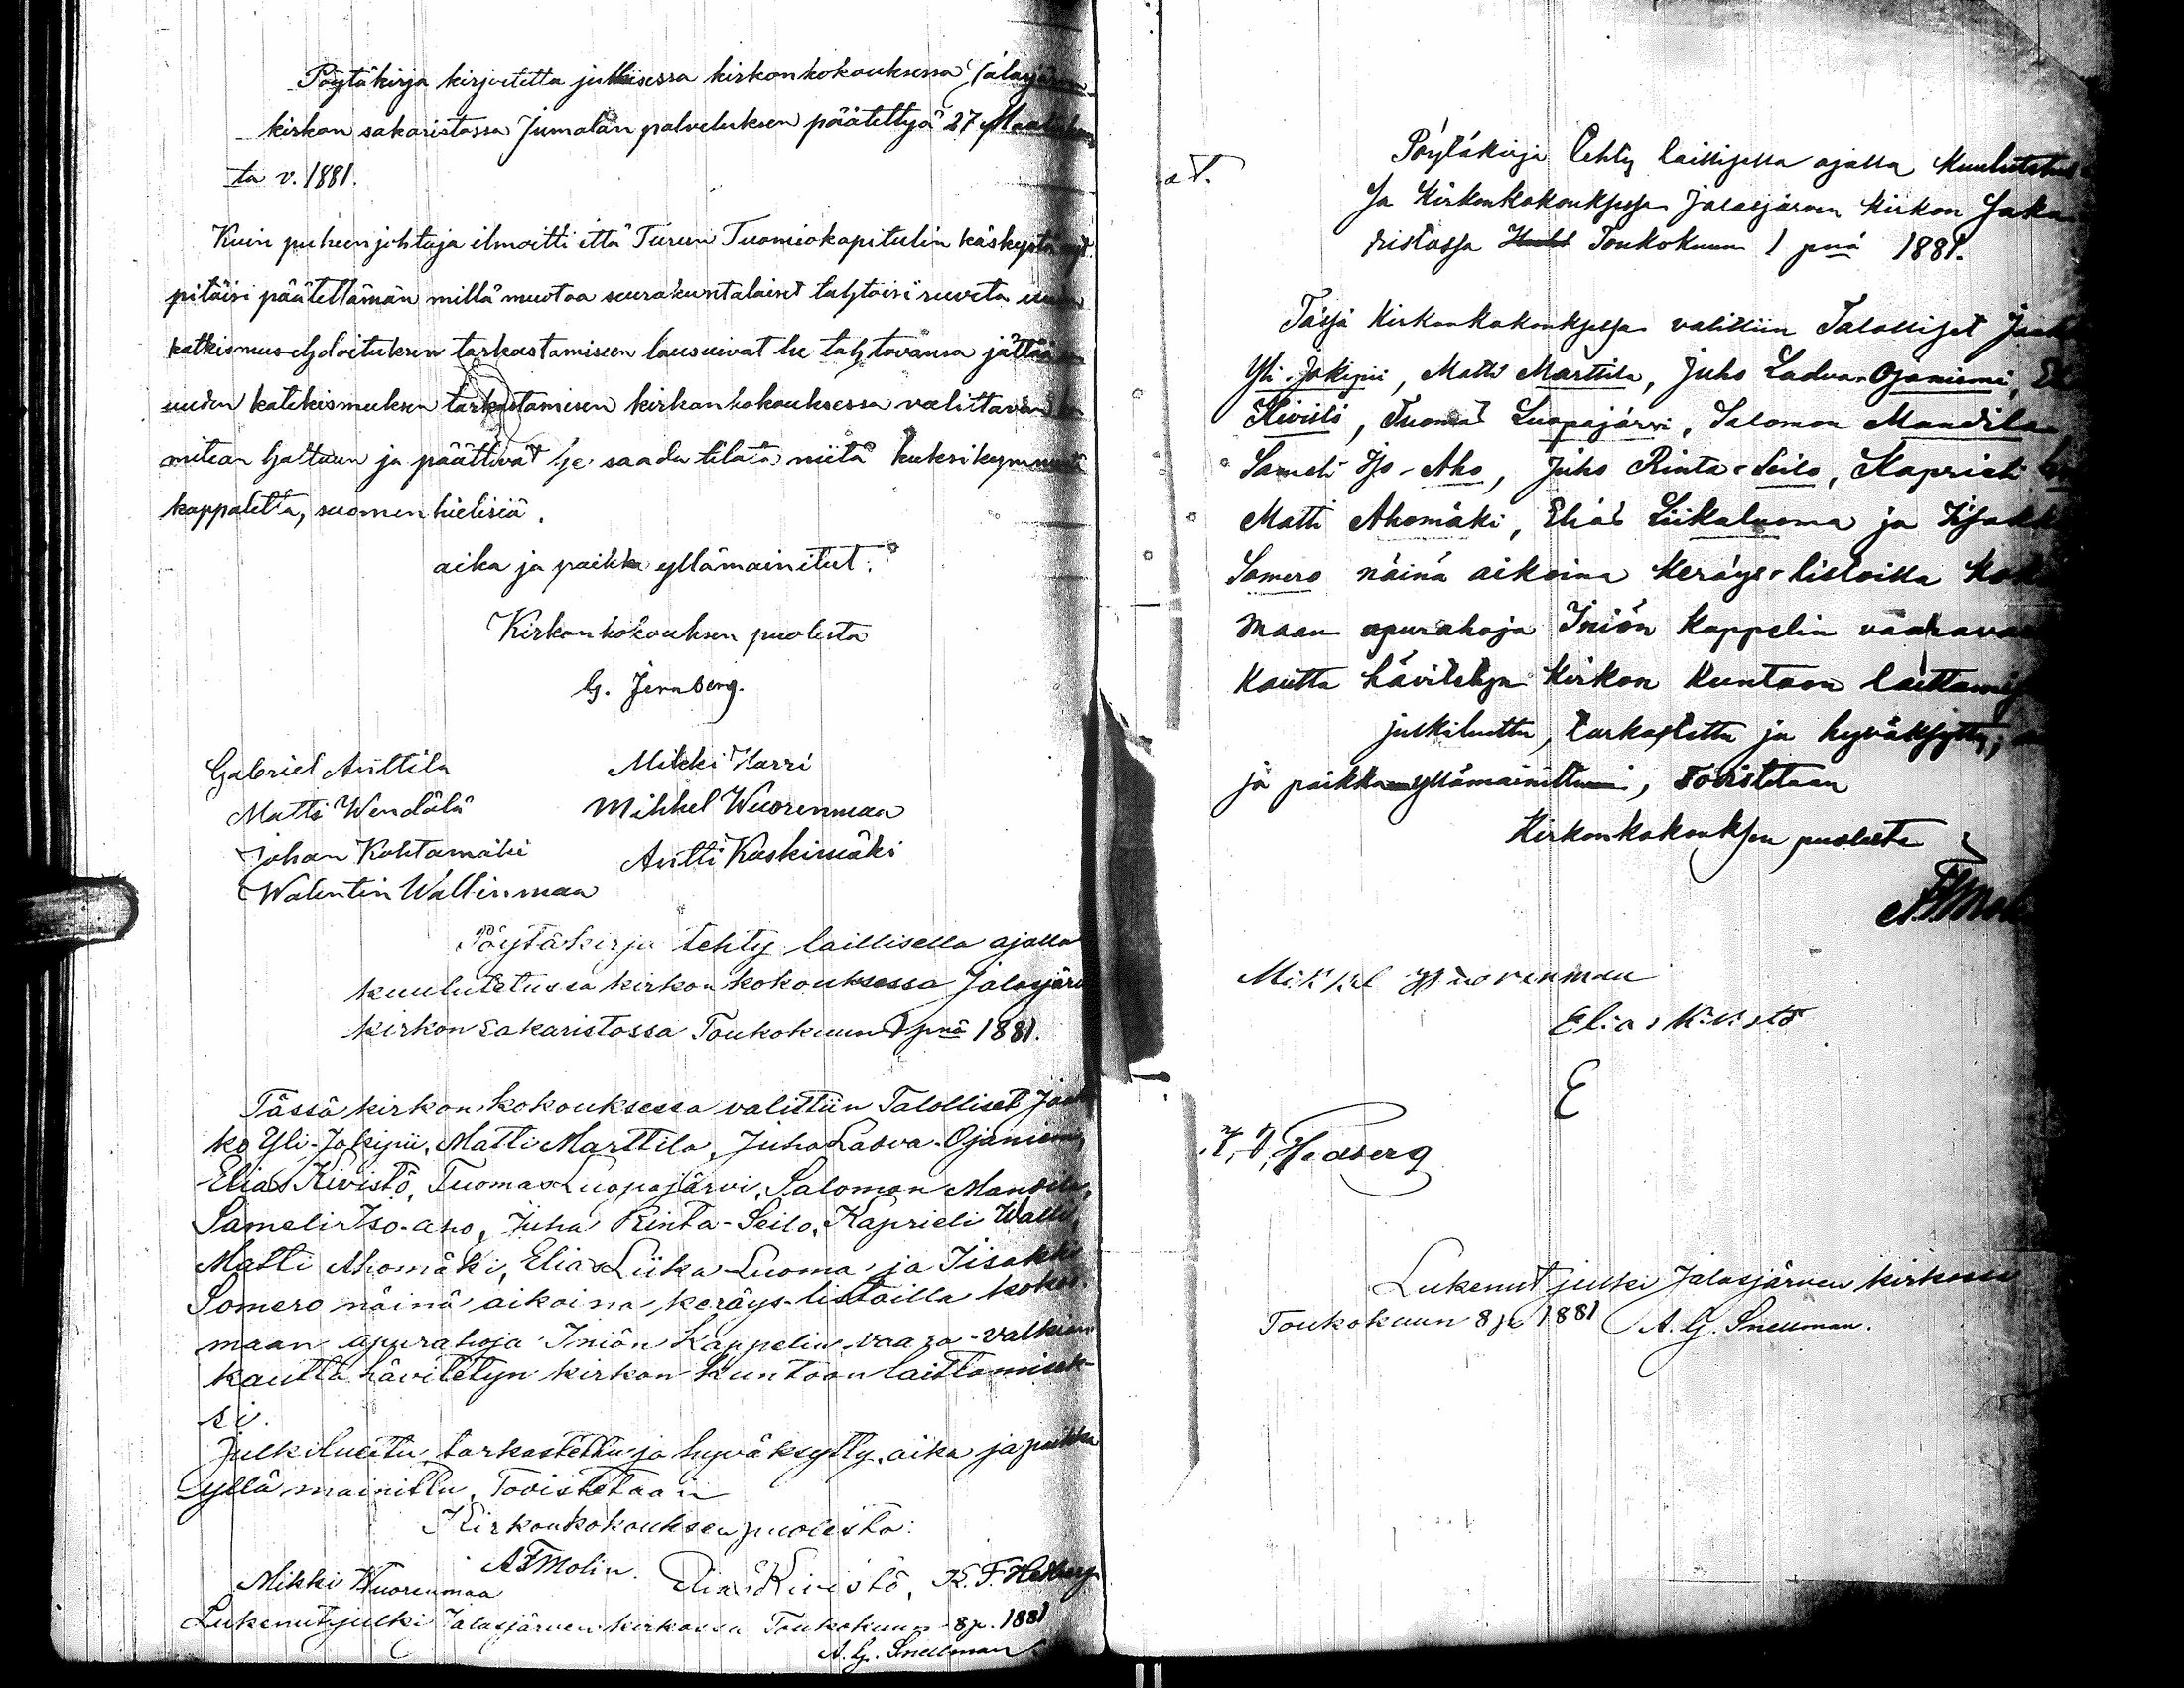 Pöytäkirja kirjoitettu julkisessa kirkonkokouksessa Jalasjärven
kirkon sakaristossa Jumalan palveluksen päätettyä 27
ta v. 1881.
Kuin puheenjohtaja ilmoitti että Turun Tuomiokapitulin käskystä nyt
pitäisi päätettämän millä muotoa seurakuntalaiset tahtoisi ruveta uuden
katkismus-ehdoituksen tarkastamiseen lausuivat he tahtovansa jättää
uuden katekismuksen tarkastamisen kirkonkokouksessa valittavan ko-
mitean haltuun ja päättivät he saada tilata niitä kaksikymmentä
kappaletta, suomenkielisiä.
aika ja paikka yllämainitut.
Kirkonkokouksen puolesta
G. Jernberg.
Gabriel Anttila Mikki Harri
Matti Wendälä Mikkel Wuorenmaa
Johan Kohtamäki Antti Koskimäki
Walentin Wallinmaa
Pöytäkirja tehty laillisella ajalla
kuulutetussa kirkon kokouksessa Jalasjärv
kirkon sakaristossa Toukokuun 1 pnä 1881.
Tässä kirkon kokouksessa valittiin Talolliset Jaak
ko Yli-Jokipii, Matti Marttila, Juha Ladva-Ojaniemi,
Elias Kivistö, Tuomas Luopajärvi, Salomon Mandila,
Sameli Iso-aho, Juha Rinta-Seilo, Kaprieli Walli,
Matti Ahomäki, Elias Liika-Luoma ja Iisakki
Somero näinä aikoina keräys-listoilla kokoo-
maan apurahoja Iniön Kappelin vaara-valkian
kautta hävitetyn kirkon kuntoon laittamisek-
si.
Julkiluettu, tarkastettu ja hyväksytty, aika ja paikka
yllä mainittu, Tovistetaan
Kirkonkokouksen puolesta:
A F Molin.
Mikki Wuorenmaa Elias Kivistö, K. F. Hedberg
Lukenut julki Jalasjärven kirkossa Toukokuun 8 p. 1881
A. G. Snellman.
Pöytäkirja tehty laillisella ajalla kuulutetus
sa Kirkonkokouksessa Jalasjärven Kirkon Saka
ristossa Toukokuun 1 pnä 1881.
Tässä Kirkonkokouksessa valittiin Talolliset Jaak
Yli-Jokipii, Matti Marttila, Juho Ladva-Ojaniemi, El
Kivistö, Tuomas Luopajärvi, Salomon Mandila
Sameli Iso-Aho, Juho Rinta-Seilo, Kaprieli
Matti Ahomäki, Elias Liikaluoma ja Iisakk
Somero näinä aikoina keräys-listoilla koko
maan apurahoja Iniön kappelin vaarava
kautta hävitetyn Kirkon kuntoon laittamis
julkiluettu, tarkastettu ja hyväksytty,
ja paikka yllämainittu, Tovistetaan
Kirkonkokouksen puolesta
A F Mol
Mikkel Wuorenmaa
Elias Kivistö
E
K. F. Hedberg
Lukenut julki Jalasjärven kirkossa
Toukokuun 8 p. 1881 A. G. Snellman.